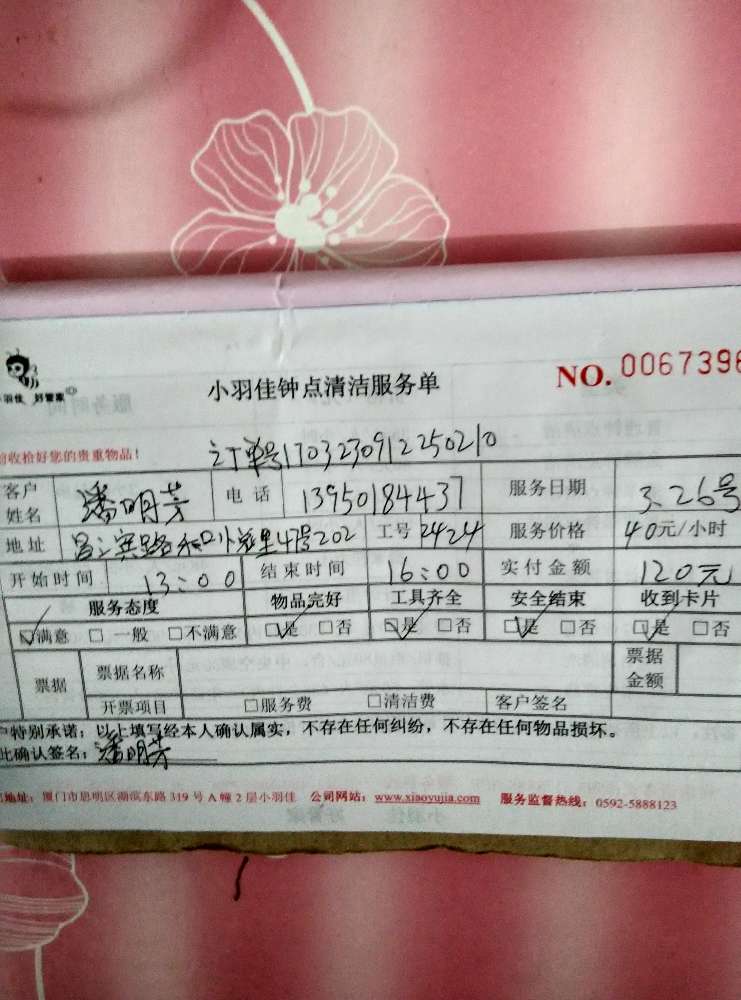 小羽佳钟点清洁服务单
NO. 0067398
羽佳 好管家
收拾好您的贵重物品！ 订单号1703230912250210
客户姓名 潘明芳 电话 13950184437 服务日期 3.26号
地址 47号202 工号 2424 服务价格 40元/小时
开始时间 13:00 结束时间 16:00 实付金额 120元
服务态度 物品完好 工具齐全 安全结束 收到卡片
☑满意 □一般 □不满意 ☑是 □否 ☑是 □否 ☑是 □否 ☑是 □否
票据 票据名称 票据金额
开票项目 □服务费 □清洁费 客户签名
户特别承诺：以上填写经本人确认属实，不存在任何纠纷，不存在任何物品损坏。
此确认签名：潘明芳
地址：厦门市思明区湖滨东路 319 号 A 幢 2 层小羽佳 公司网站：www.xiaoyujia.com 服务监督热线：0592-5888123